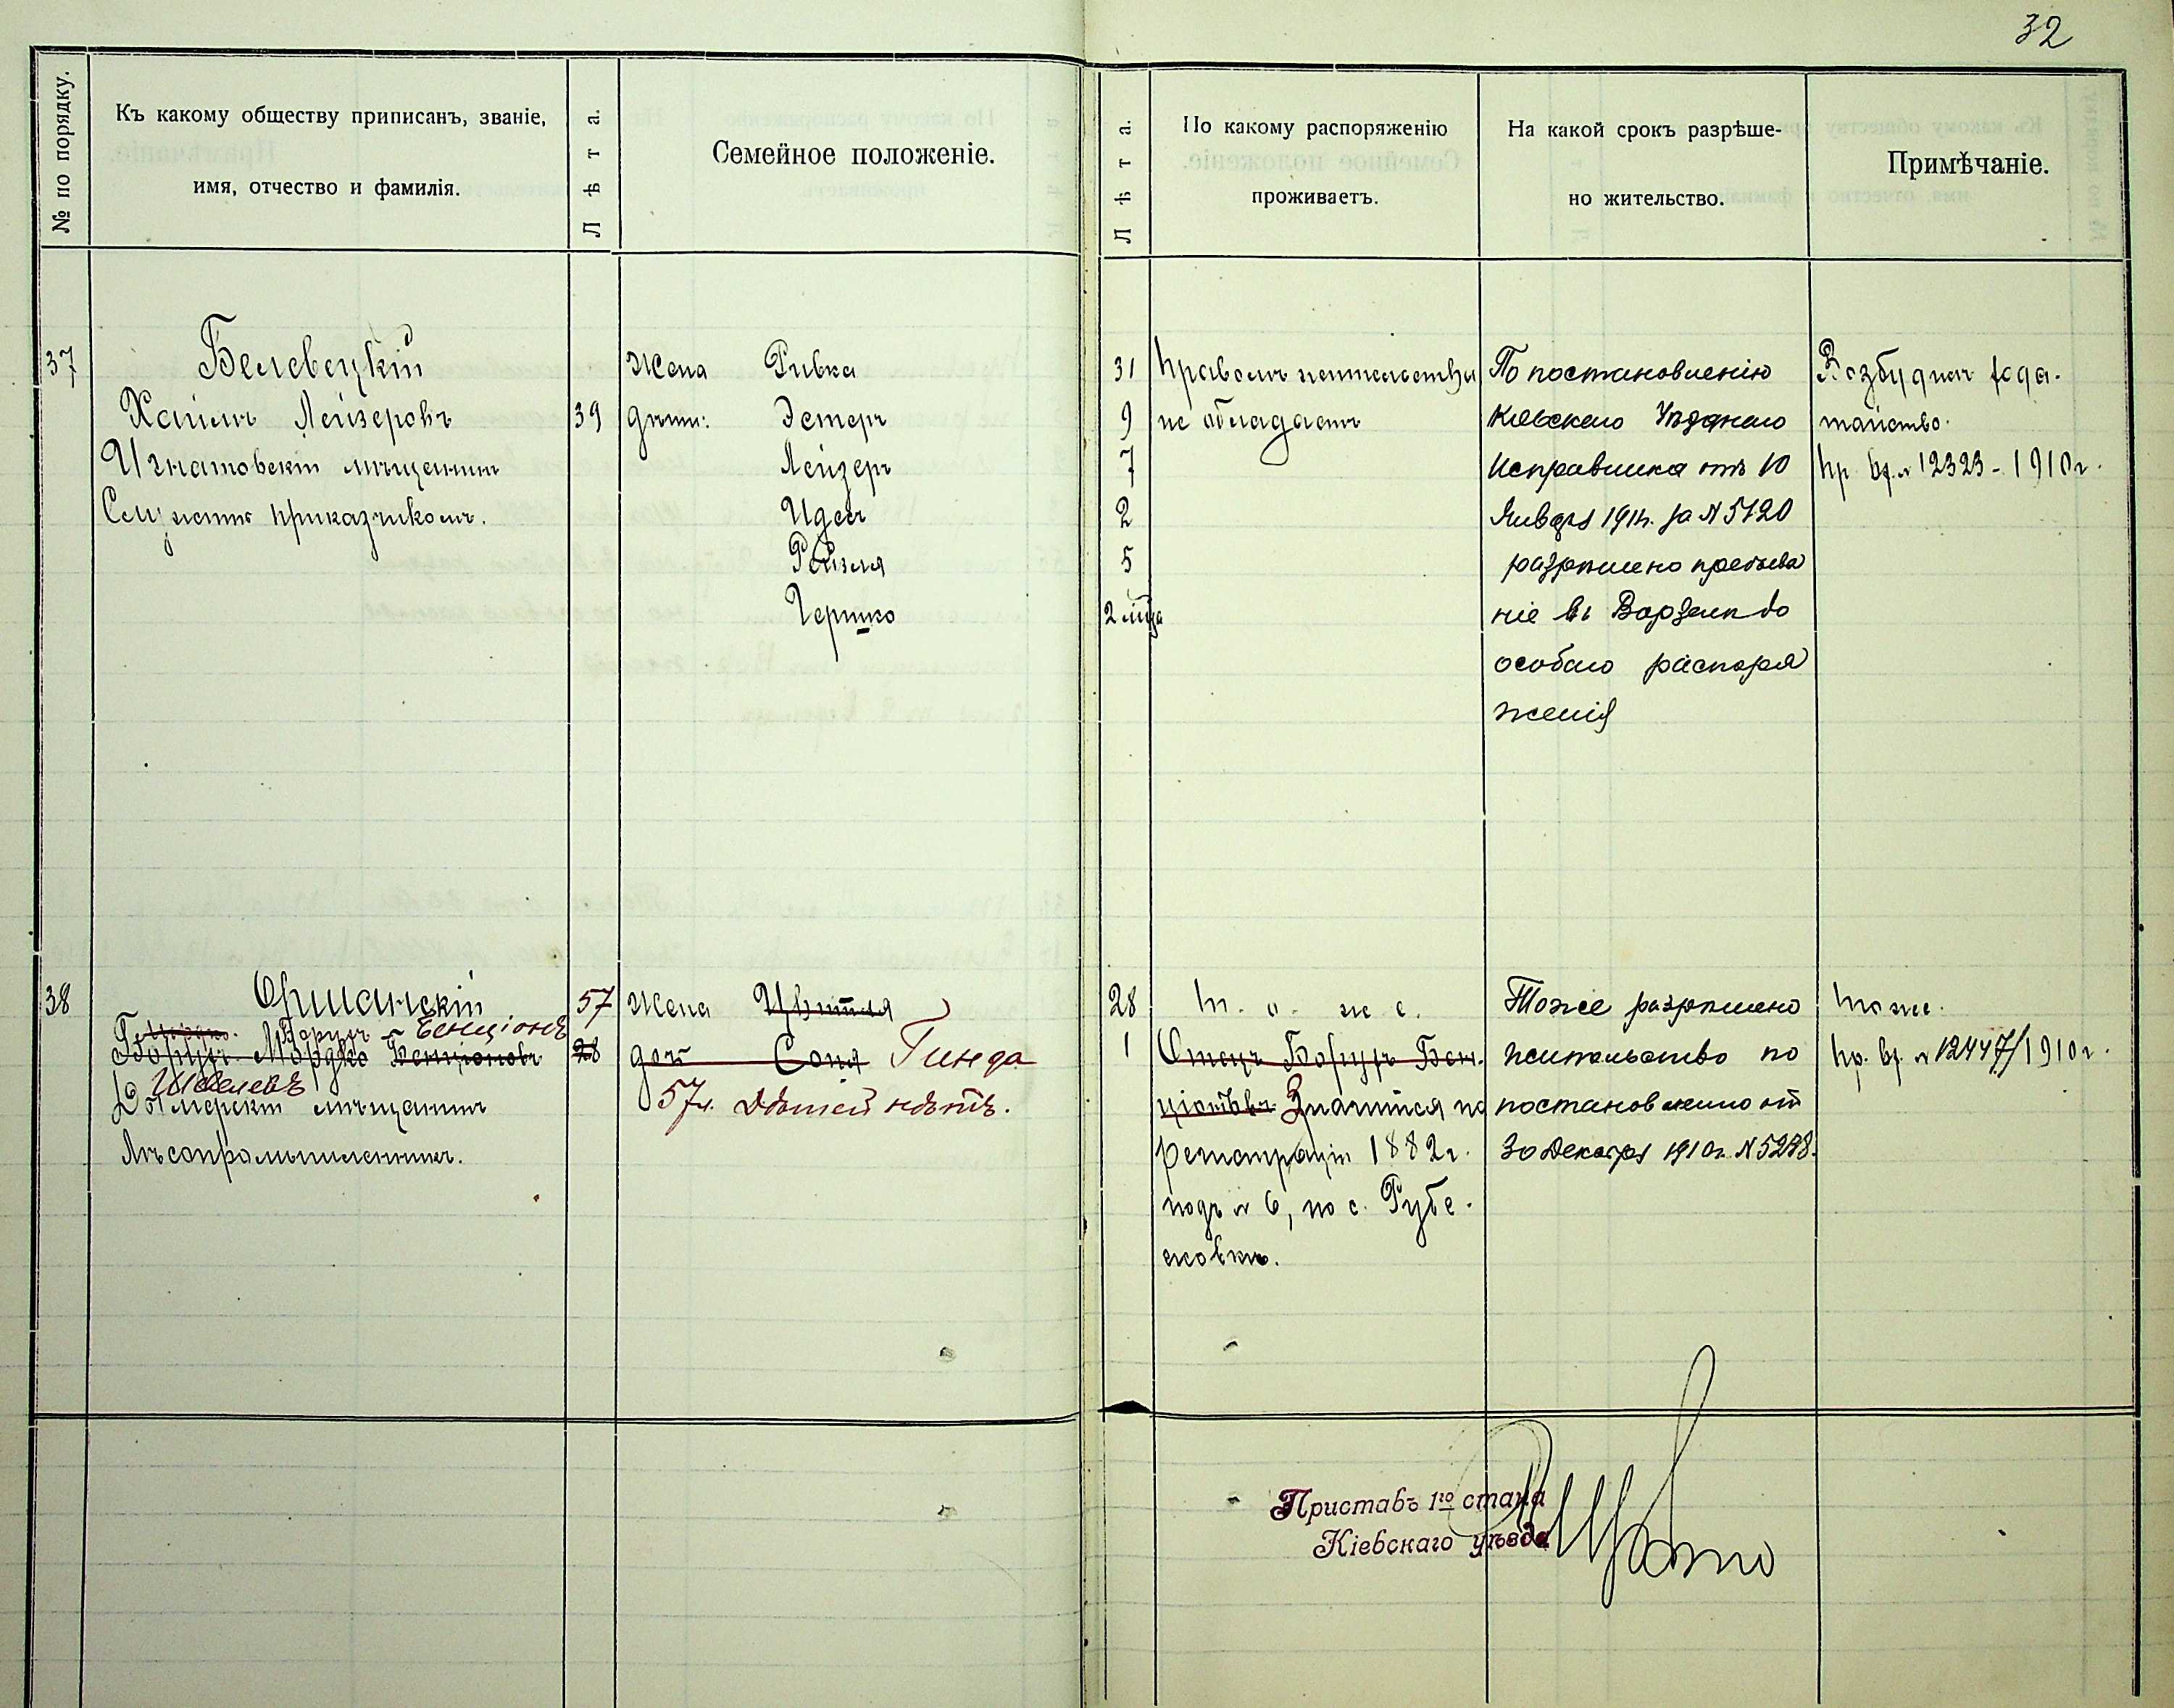 32
№ по порядку.
Къ какому обществу приписанъ, званіе,
имя, отчество и фамилія.
Лѣта.
Семейное положеніе.
Лѣта.
По какому распоряженію
проживаетъ.
На какой срокъ разрѣше-
но жительство.
Примѣчаніе.
37
Белевецкій
Хаимъ Лейзеровъ
Игнатовскій мѣщанинъ
Служитъ приказчикомъ.
39
Жена Ривка
дѣти: Эстеръ
Лейзеръ
Идесъ
Рейзля
Гершко
31
9
7
2
5
2 м-ца
Правомъ жительства
не обладаетъ
По постановленію
Кіевскаго Уѣзднаго
Исправника отъ 10
Января 1911г. за № 5120
разрѣшено пребыва
ніе въ Ворзелѣ до
особаго распоря
женія
Возбудилъ хода-
тайство.
Пр. вх. № 12323 - 1910г.
38
Оршанскій
Борухъ - Бенціонъ
Борухъ Мордко Бенціоновъ
Шмелевъ
мѣщанинъ
Лѣсопромышленникъ.
57
28
Жена Цвитля
доч Соня Гинда
57л. Дѣтей нѣтъ.
28
1
Т. о. ж е.
Отецъ Борухъ Бен-
ціоновъ Значится по
регистраціи 1882г.
подъ № 6, по с. Рубе-
жовкѣ.
Тоже разрѣшено
жительство по
постановленію от
30 Декабря 1910г. № 5298.
Тоже.
Пр. вх. № 12447/1910г.
Приставъ 1го стана
Кіевскаго уѣзда